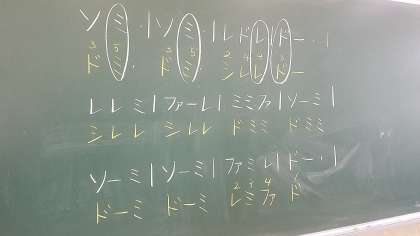 ソ ミ ・・|ソ ミ ・・|レ ド レ|ド ー ・・|
3 5 3 5 2 4 3
ド ミ ・ ド ミ シ レ レ ド ー
レ レ ミ|ファ ー レ|ミ ミ ファ|ソ ー ミ|
シ レ レ シ レ レ ド ミ ミ ド ミ ミ
ソ ー ミ|ソ ー ミ|ファ ミ レ|ド ー ・|
2 3 4
ド ー ミ ド ー ミ レ ミ ファ ド